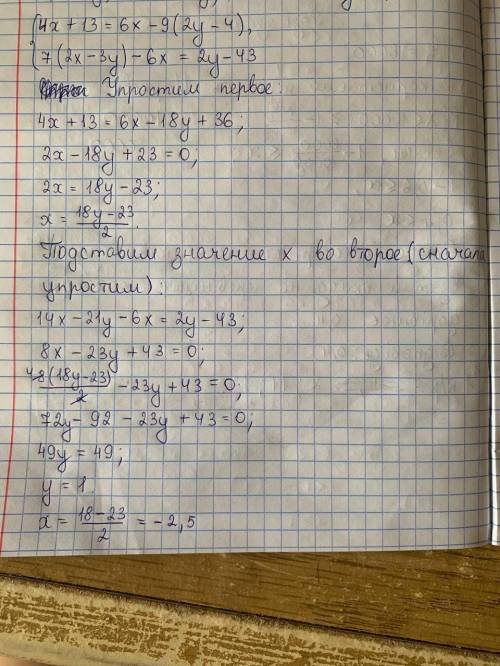 4x + 13 = 6x - 9(2y - 4),
7(2x - 3y) - 6x = 2y - 43
Упростим первое:
4x + 13 = 6x - 18y + 36;
2x - 18y + 23 = 0;
2x = 18y - 23;
x = (18y - 23)/2.
Подставим значение x во второе (сначала
упростим):
14x - 21y - 6x = 2y - 43;
8x - 23y + 43 = 0;
4 8(18y - 23)/2 - 23y + 43 = 0;
72y - 92 - 23y + 43 = 0;
49y = 49;
y = 1.
x = (18 - 23)/2 = -2,5